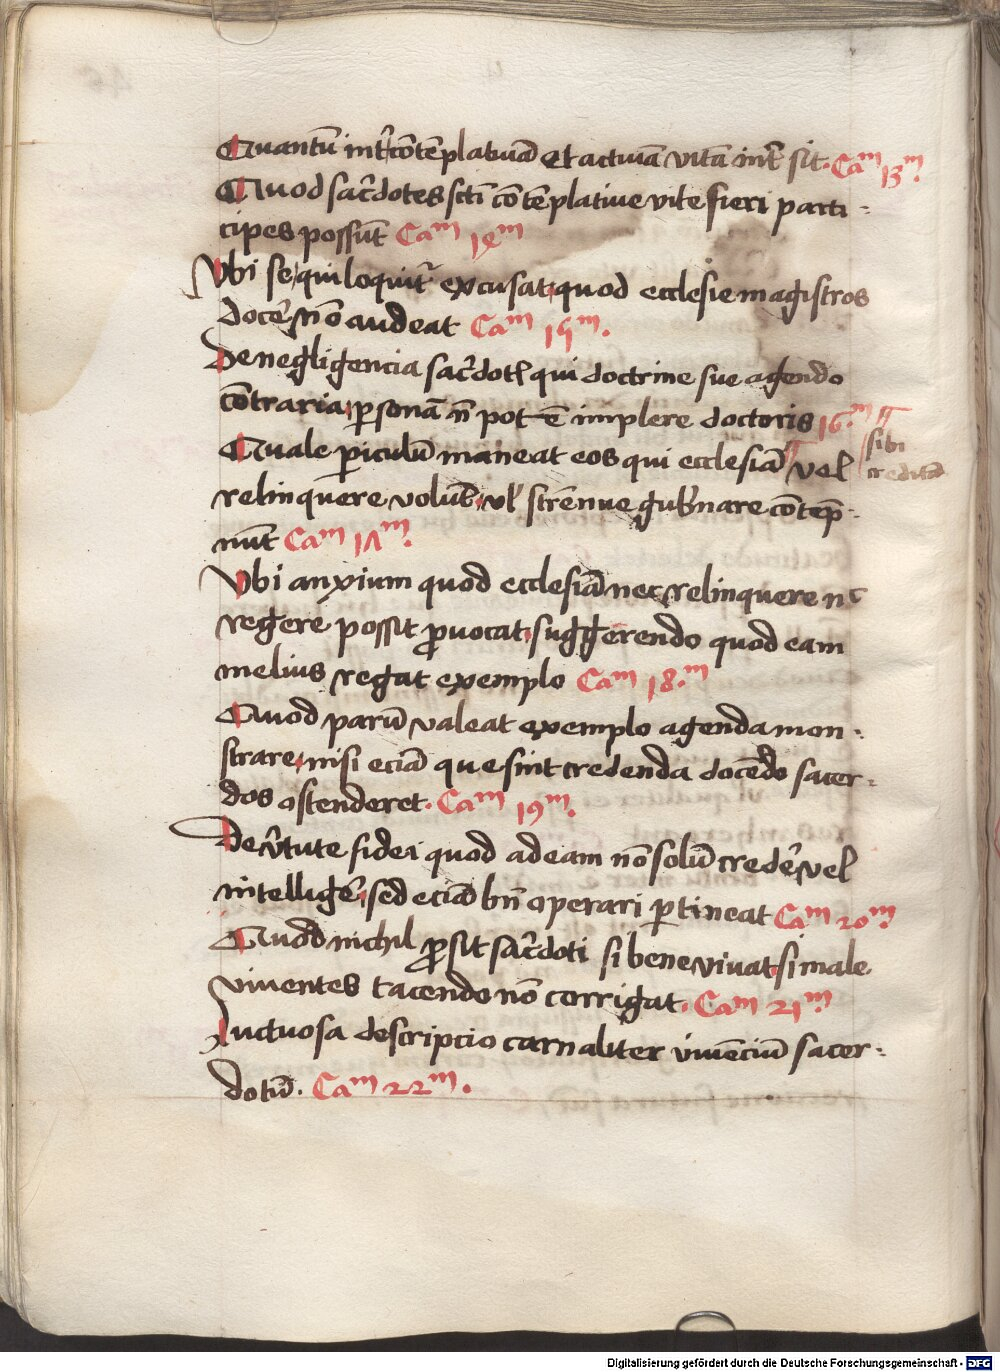 Quantū int̄ cōtēplatiuā et actiuā vitā int̄ sit. Cam 13m.
Quod sac̄dotes sc̄ti cōtēplatiue vite fieri parti-
cipes possūt Cam 14m
Vbi se qui loquit᷑ excusat quod ecclesie magistros
docer̄ nō audeat Cam 15m.
De negligencia sac̄dotꝭ qui doctrine sue agendo
cōtraria ꝑsonā n̄ pot ē implere doctoris 16.m
Quale ꝑiculū maneat eos qui ecclesiā vel
sibi
creditā
relinquere volūt vl̓ strēnue gub̄nare cōtēp-
nūt Cam 17m.
Vbi anxium quod ecclesiā nec relinquere nc
regere possit ꝓuocat suggerendo quod eam
melius regat exemplo Cam 18.m
Quod parū valeat exemplo agenda mon-
strare nisi eciā que sint credenda docēdo sacer-
dos ostenderet. Cam 19m.
De v̄tute fidei quod ad eam nō solū creder̄ vel
intelliger̄ sed eciā bn̄ operari ꝑtineat Cam 20m.
Quod nichil ꝓsit sac̄doti si bene viuat si male
viuentes tacendo nō corrigat. Cam 21m
Luctuosa descriptio carnaliter viuēciū sacer-
dotū. Cam 22m.
Digitalisierung gefördert durch die Deutsche Forschungsgemeinschaft - DFG